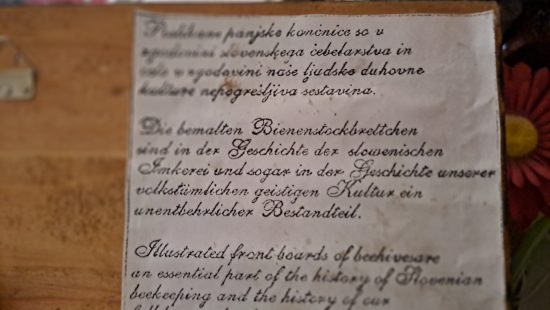 panjske končnice so v
zgodovini slovenskega čebelarstva in
celo v zgodovini naše ljudske duhovne
kulture nepogrešljiva sestavina.
Die bemalten Bienenstockbrettchen
sind in der Geschichte der slowenischen
Imkerei und sogar in der Geschichte unserer
volkstümlichen geistigen Kultur ein
unentbehrlicher Bestandteil.
Illustrated front boards of beehivesare
an essential part of the history of Slovenian
beekeeping and the history of our